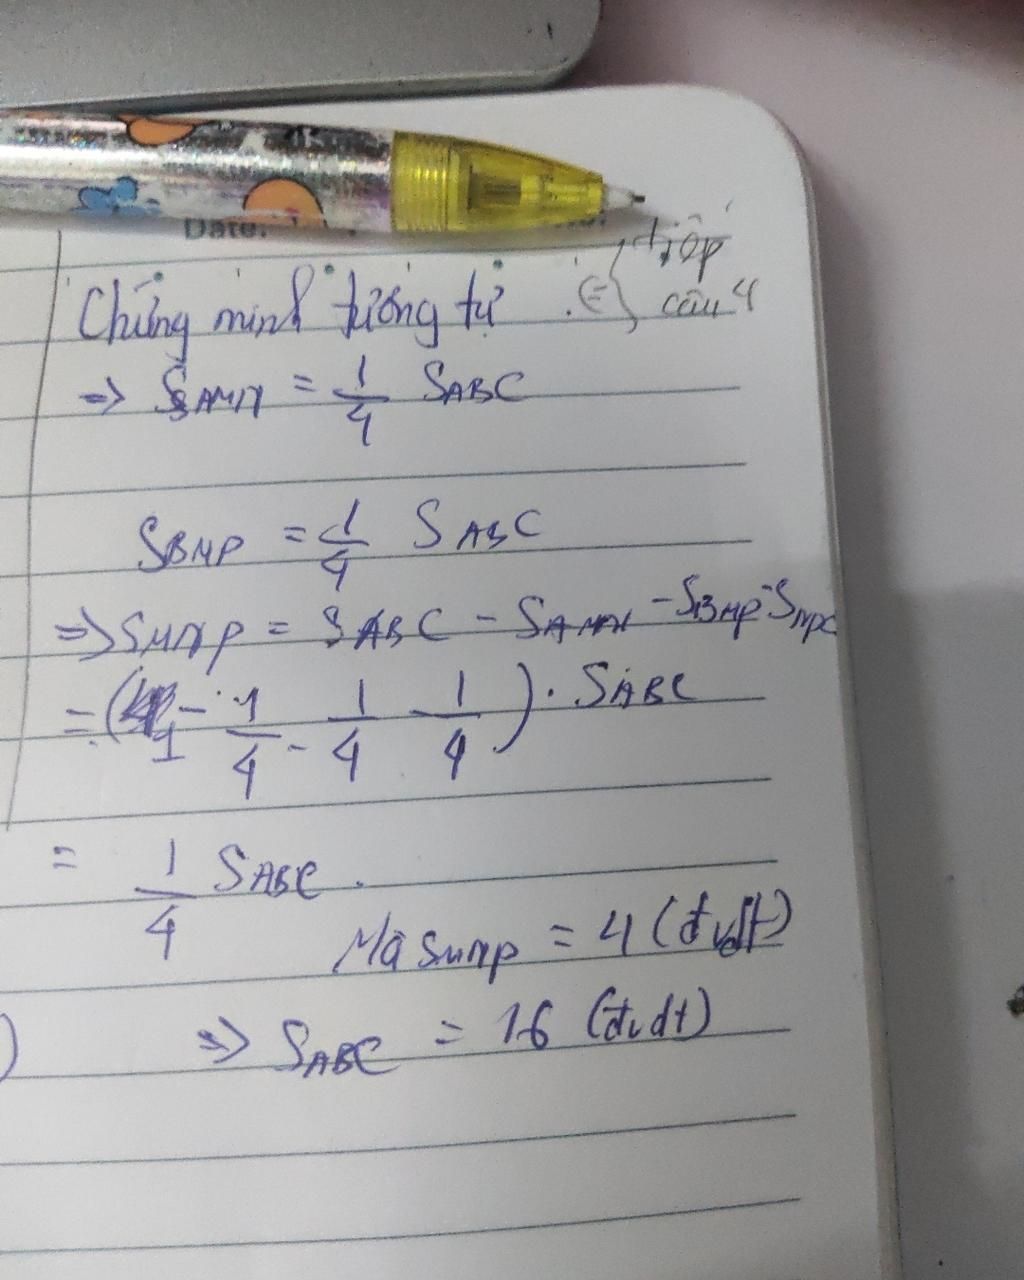 Date:
tiếp
câu 4
Chứng minh tương tự
=> SAMN = 1/4 SABC
SBMP = 1/4 SABC
=> SMNP = SABC - SAMN - SBMP - SNPC
= (1 - 1/4 - 1/4 - 1/4) . SABC
= 1/4 SABC.
Mà SMNP = 4 (đvdt)
=> SABC = 16 (đvdt)